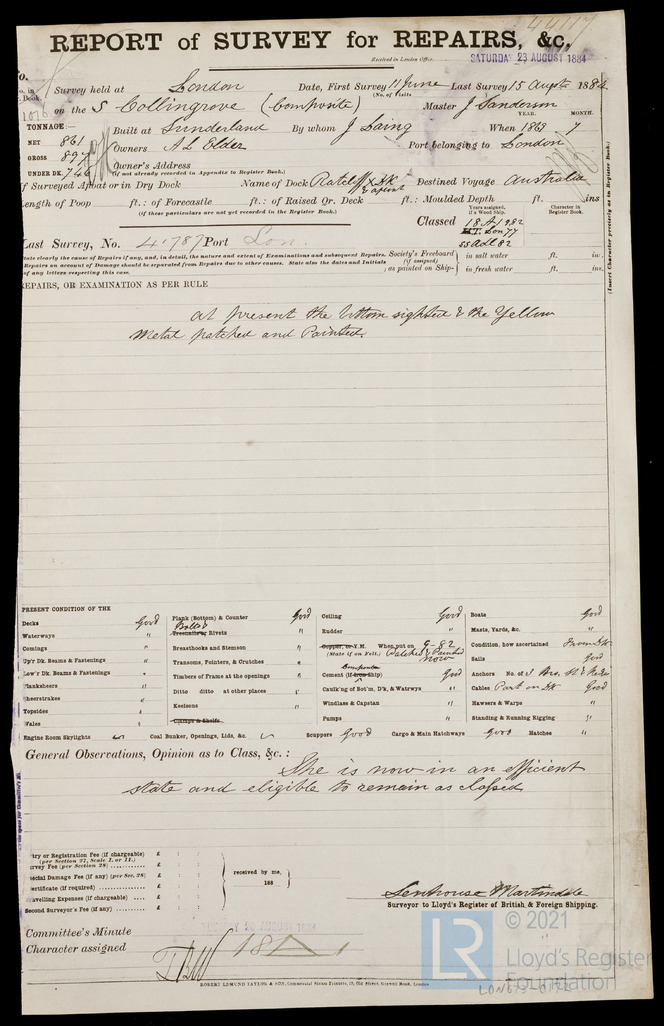 44117
REPORT of SURVEY for REPAIRS, &c.
Received in London Office, SATURDAY 23 AUGUST 1884
Survey held at London Date, First Survey 11 June Last Survey 15 Augst 1884
(No. of Visits
on the S Collingrove (Composite) Master J Sanderson
TONNAGE:— YEAR. MONTH.
Built at Sunderland By whom J Laing When 1869 7
NET 861
GROSS 897
UNDER DK. 746
Owners A L Elder Port belonging to London
Owner's Address
(if not already recorded in Appendix to Register Book.)
If Surveyed Afloat or in Dry Dock Name of Dock Ratcliff X Dk & afloat Destined Voyage Australia
Length of Poop ft.: of Forecastle ft.: of Raised Qr. Deck ft.: Moulded Depth ft. ins
(if these particulars are not yet recorded in the Register Book.)
Years assigned, if a Wood Ship. Character in Register Book.
Classed 18 A1 9,82
Lon 77
SS Adl 82
(Insert Character precisely as in Register Book.)
Last Survey, No. 41787 Port Lon.
State clearly the cause of Repairs if any, and, in detail, the nature and extent of Examinations and subsequent Repairs.
Repairs on account of Damage should be separated from Repairs due to other causes. State also the dates and Initials
of any letters respecting this case.
Society's Freeboard (if assigned) as painted on Ship- in salt water ft. in.
in fresh water ft. ins.
REPAIRS, OR EXAMINATION AS PER RULE
At present the bottom sighted & the Yellow
Metal patched and Painted.
PRESENT CONDITION OF THE
Decks Good
Waterways "
Comings "
Up'r Dk. Beams & Fastenings "
Low'r Dk. Beams & Fastenings "
Planksheers "
Sheerstrakes "
Topsides "
Wales "
Engine Room Skylights
Plank (Bottom) & Counter Good
Bolts Treenails or Rivets "
Breasthooks and Stemson "
Transoms, Pointers, & Crutches "
Timbers of Frame at the openings "
Ditto ditto at other places "
Keelsons "
Clamps & Shelfs
Coal Bunker, Openings, Lids, &c.
Ceiling Good
Rudder "
Copper, or Y.M. When put on 9-82
(State if on Felt.) Patched & Painted now
Cement (if Iron Ship) Composite Good
Caulk'ng of Bot'm, D'k, & Watrways "
Windlass & Capstan "
Pumps "
Scuppers Good Cargo & Main Hatchways Good Hatches "
Boats Good
Masts, Yards, &c. "
Condition, how ascertained From Dk
Sails Good
Anchors No. of
Cables Part on Dk Good
Hawsers & Warps "
Standing & Running Rigging "
General Observations, Opinion as to Class, &c.:
She is now in an efficient
state and eligible to remain as classed
Entry or Registration Fee (if chargeable) £
(per Section 27, Scale I. or II.)
Survey Fee (per Section 28) £
Special Damage Fee (if any) (per Sec. 28) £
Certificate (if required) £
Travelling Expenses (if chargeable) £
Second Surveyor's Fee (if any) £
received by me,
188
Senhouse Martindale
Surveyor to Lloyd's Register of British & Foreign Shipping.
Committee's Minute
Character assigned
18 A 1
ROBERT EDMUND TAYLOR & SON, Commercial Steam Printers, 19, Old Street, Goswell Road, London
LR
© 2021
Lloyd's Register
Foundation